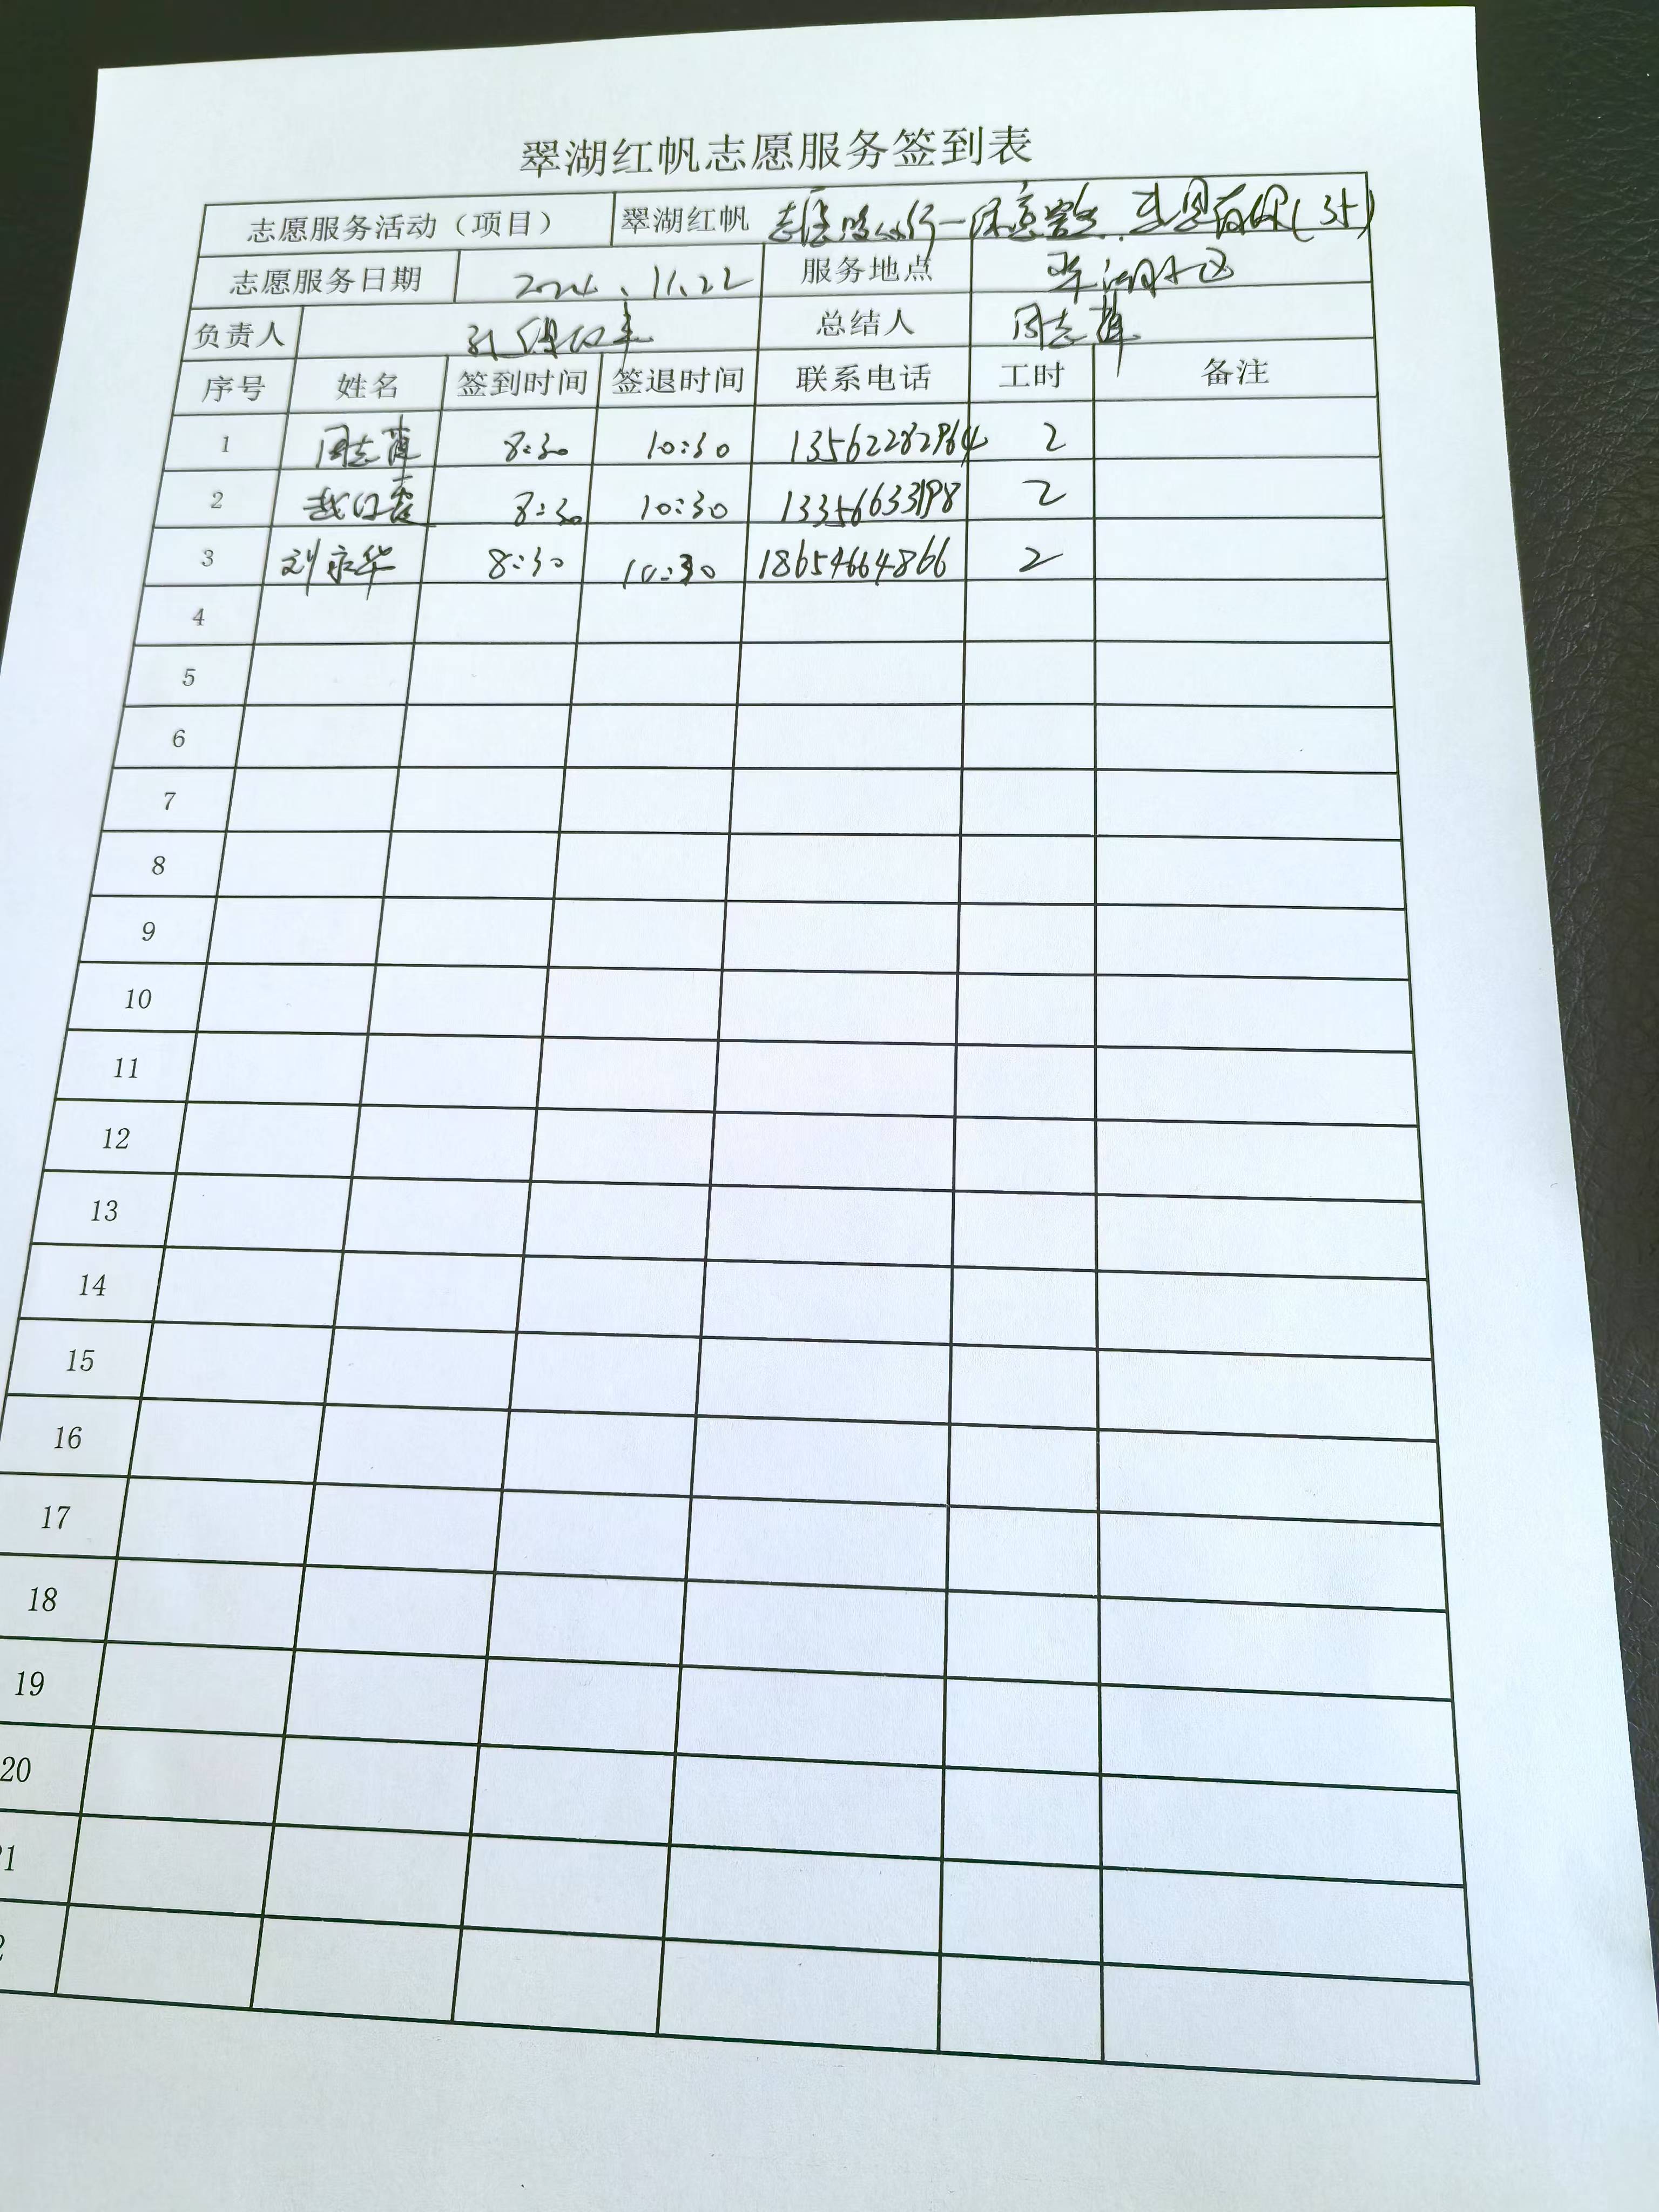 翠湖红帆志愿服务签到表
志愿服务活动（项目） 翠湖红帆 (35)
志愿服务日期 2024、11、22 服务地点 翠湖小区
负责人 总结人 周志
序号 姓名 签到时间 签退时间 联系电话 工时 备注
1 周志 8:30 10:30 13562282964 2
2 赵 8:30 10:30 13356633198 2
3 刘京华 8:30 10:30 18654664866 2
4
5
6
7
8
9
10
11
12
13
14
15
16
17
18
19
20
1
2